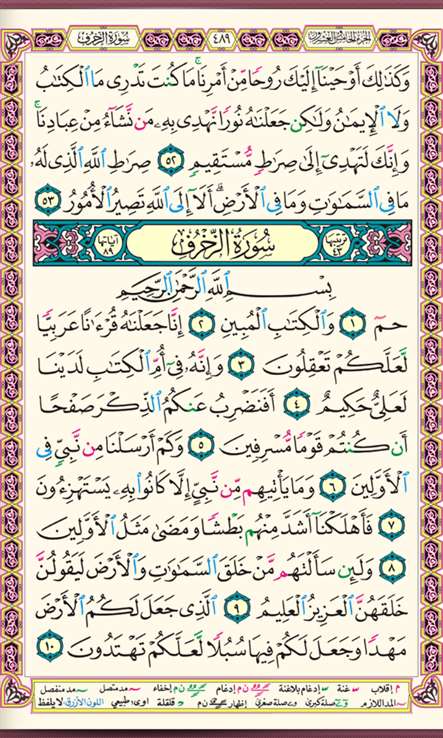 سُورَةُ الزُّخْرُفِ
٤٨٩
الجزء الخامس والعشرون
وَكَذَٰلِكَ أَوْحَيْنَآ إِلَيْكَ رُوحًا مِّنْ أَمْرِنَا ۚ مَا كُنتَ تَدْرِى مَا ٱلْكِتَٰبُ
وَلَا ٱلْإِيمَٰنُ وَلَٰكِن جَعَلْنَٰهُ نُورًا نَّهْدِى بِهِۦ مَن نَّشَآءُ مِنْ عِبَادِنَا ۚ
وَإِنَّكَ لَتَهْدِىٓ إِلَىٰ صِرَٰطٍ مُّسْتَقِيمٍ ٥٢ صِرَٰطِ ٱللَّهِ ٱلَّذِى لَهُۥ
مَا فِى ٱلسَّمَٰوَٰتِ وَمَا فِى ٱلْأَرْضِ ۗ أَلَآ إِلَى ٱللَّهِ تَصِيرُ ٱلْأُمُورُ ٥٣
ترتيبها ٤٣ سُورَةُ الزُّخْرُفِ آياتها ٨٩
بِسْمِ ٱللَّهِ ٱلرَّحْمَٰنِ ٱلرَّحِيمِ
حمٓ ١ وَٱلْكِتَٰبِ ٱلْمُبِينِ ٢ إِنَّا جَعَلْنَٰهُ قُرْءَٰنًا عَرَبِيًّا
لَّعَلَّكُمْ تَعْقِلُونَ ٣ وَإِنَّهُۥ فِىٓ أُمِّ ٱلْكِتَٰبِ لَدَيْنَا
لَعَلِىٌّ حَكِيمٌ ٤ أَفَنَضْرِبُ عَنكُمُ ٱلذِّكْرَ صَفْحًا
أَن كُنتُمْ قَوْمًا مُّسْرِفِينَ ٥ وَكَمْ أَرْسَلْنَا مِن نَّبِىٍّ فِى
ٱلْأَوَّلِينَ ٦ وَمَا يَأْتِيهِم مِّن نَّبِىٍّ إِلَّا كَانُوا۟ بِهِۦ يَسْتَهْزِءُونَ
٧ فَأَهْلَكْنَآ أَشَدَّ مِنْهُم بَطْشًا وَمَضَىٰ مَثَلُ ٱلْأَوَّلِينَ
٨ وَلَئِن سَأَلْتَهُم مَّنْ خَلَقَ ٱلسَّمَٰوَٰتِ وَٱلْأَرْضَ لَيَقُولُنَّ
خَلَقَهُنَّ ٱلْعَزِيزُ ٱلْعَلِيمُ ٩ ٱلَّذِى جَعَلَ لَكُمُ ٱلْأَرْضَ
مَهْدًا وَجَعَلَ لَكُمْ فِيهَا سُبُلًا لَّعَلَّكُمْ تَهْتَدُونَ ١٠
م إقلاب غنة إدغام بلاغنة ن م إدغام ن م إخفاء مد متصل مد منفصل
المد اللازم صلة كبرى صلة صغرى إظهار ن م قلقلة اوى طبيعي اللون الأزرق لا يلفظ